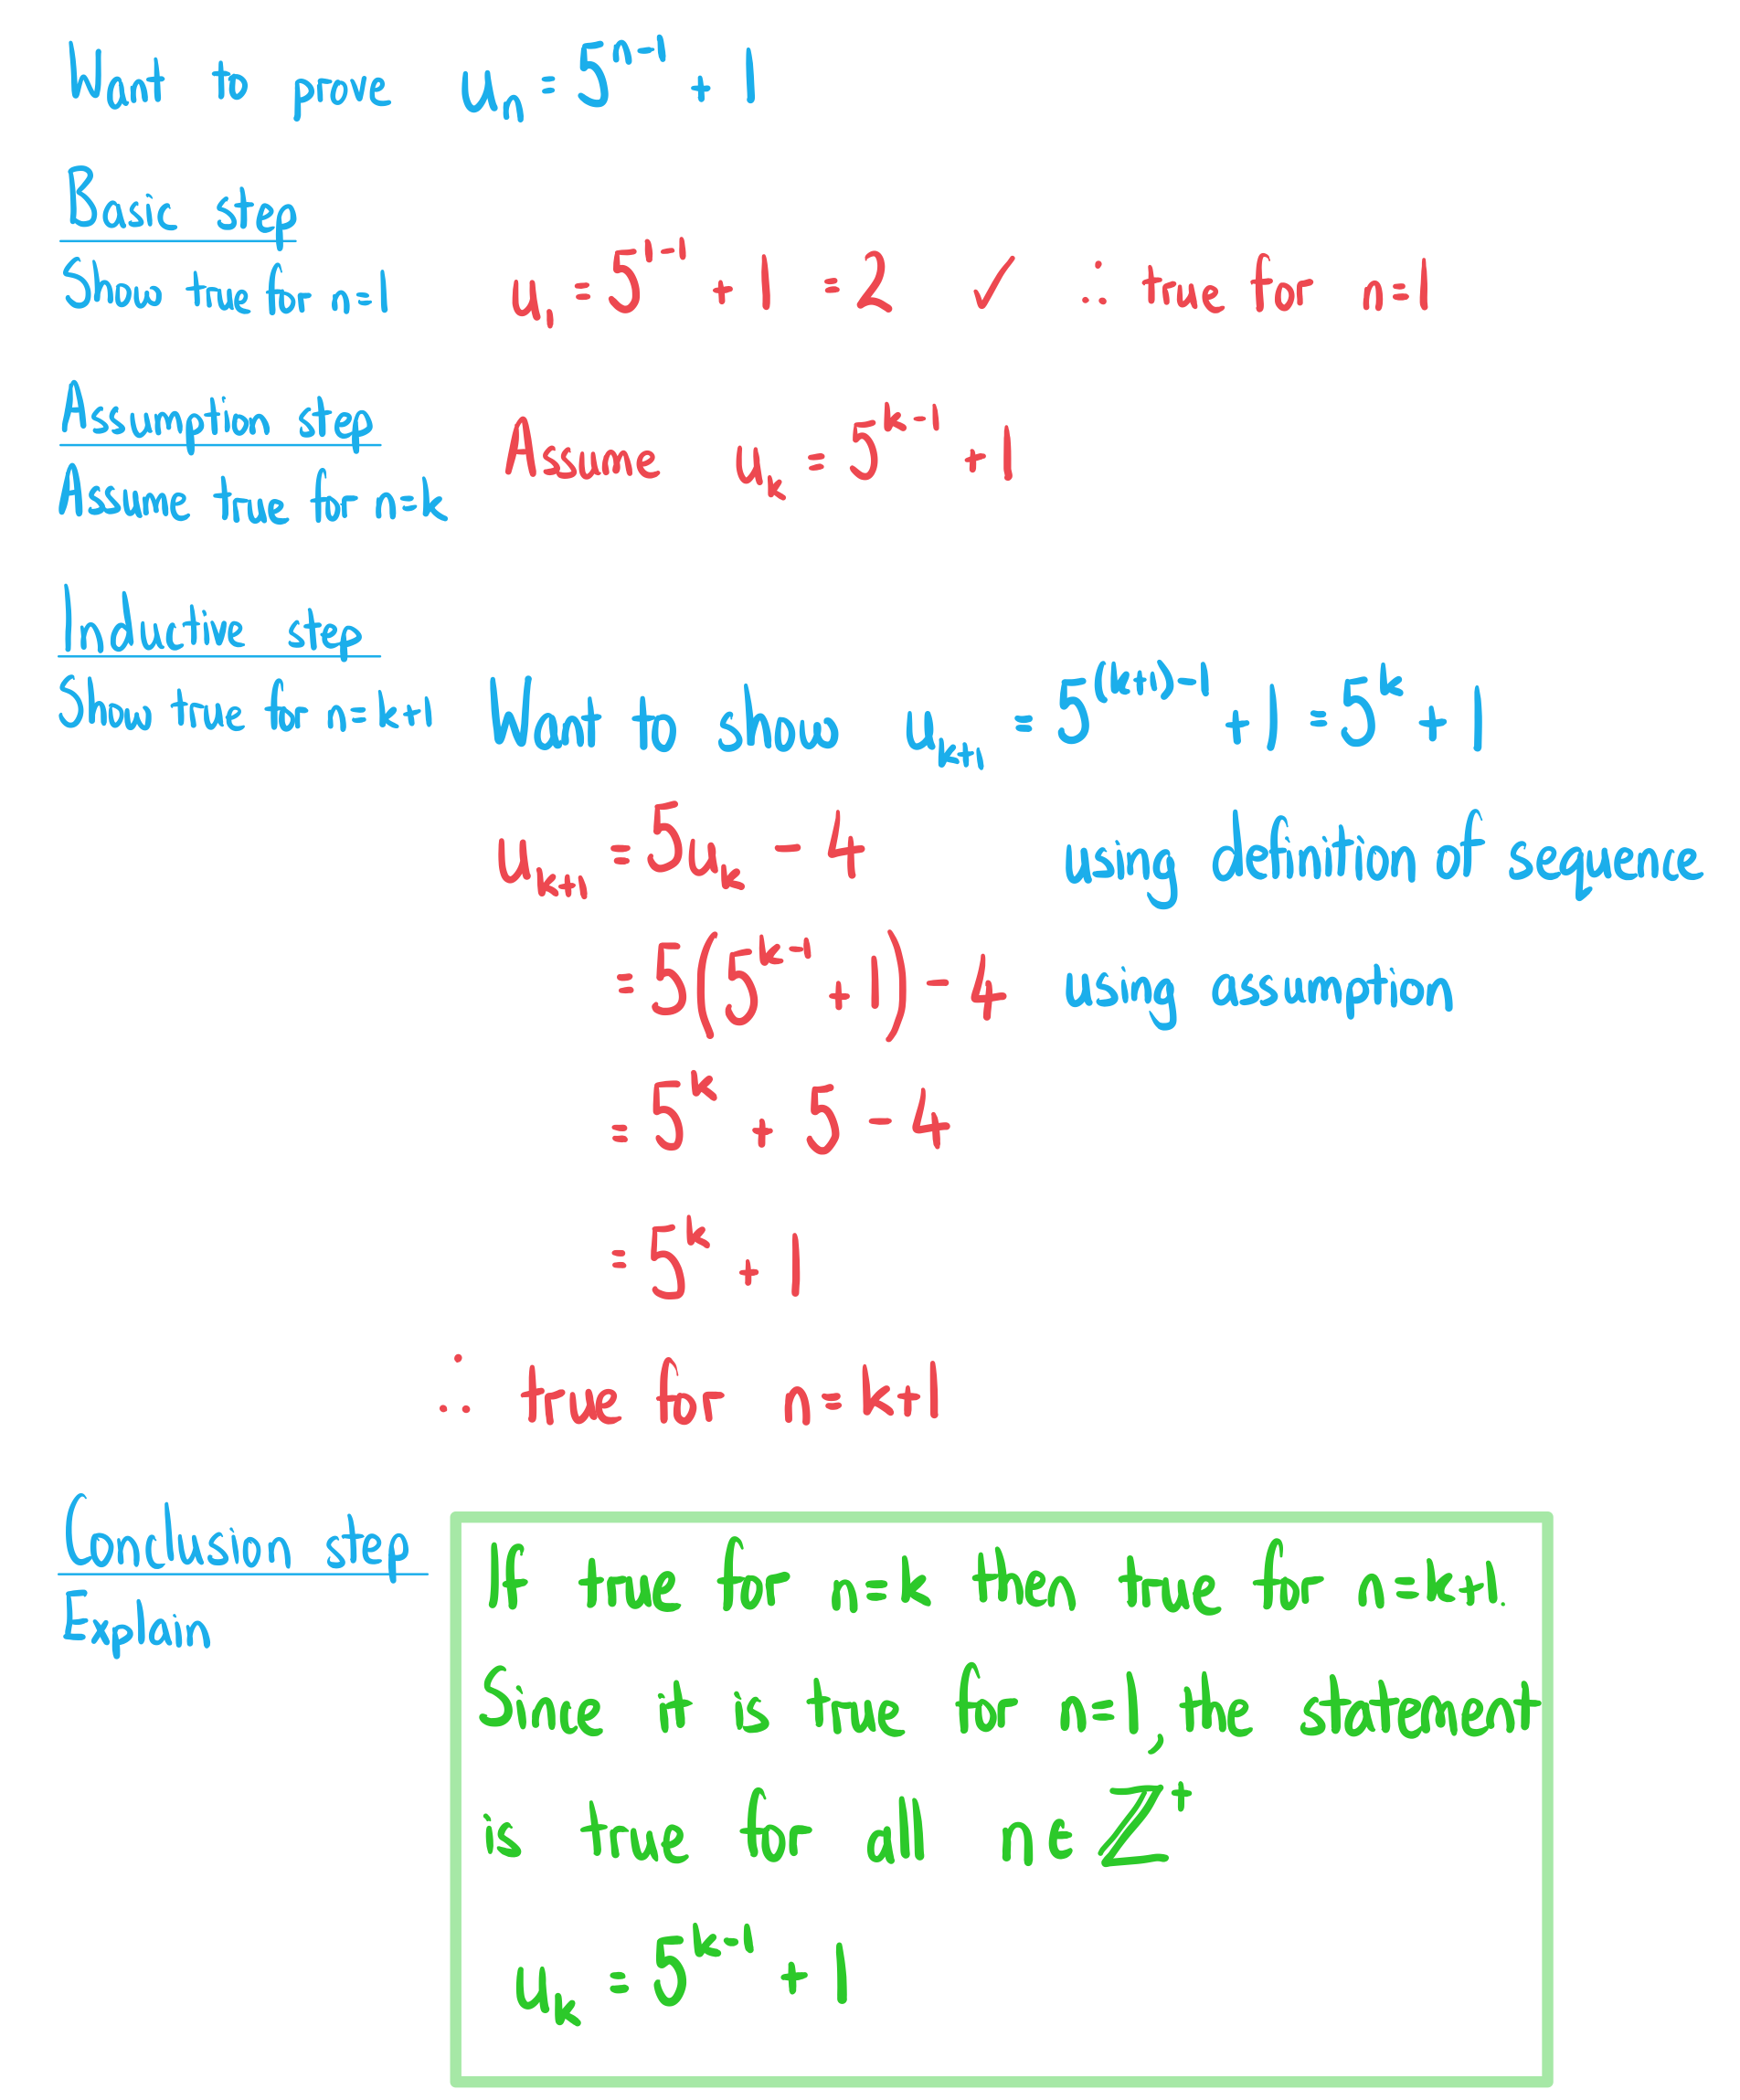 Want to prove uₙ = 5ⁿ⁻¹ + 1
Basic step
Show true for n=1 u₁ = 5¹⁻¹ + 1 = 2 ✓ ∴ true for n=1
Assumption step
Assume uₖ = 5ᵏ⁻¹ + 1
Assume true for n=k
Inductive step
Show true for n=k+1 Want to show uₖ₊₁ = 5⁽ᵏ⁺¹⁾⁻¹ + 1 = 5ᵏ + 1
uₖ₊₁ = 5uₖ − 4 using definition of sequence
= 5(5ᵏ⁻¹ + 1) − 4 using assumption
= 5ᵏ + 5 − 4
= 5ᵏ + 1
∴ true for n=k+1
Conclusion step
Explain
If true for n=k then true for n=k+1.
Since it is true for n=1, the statement
is true for all n∈ℤ⁺
uₖ = 5ᵏ⁻¹ + 1